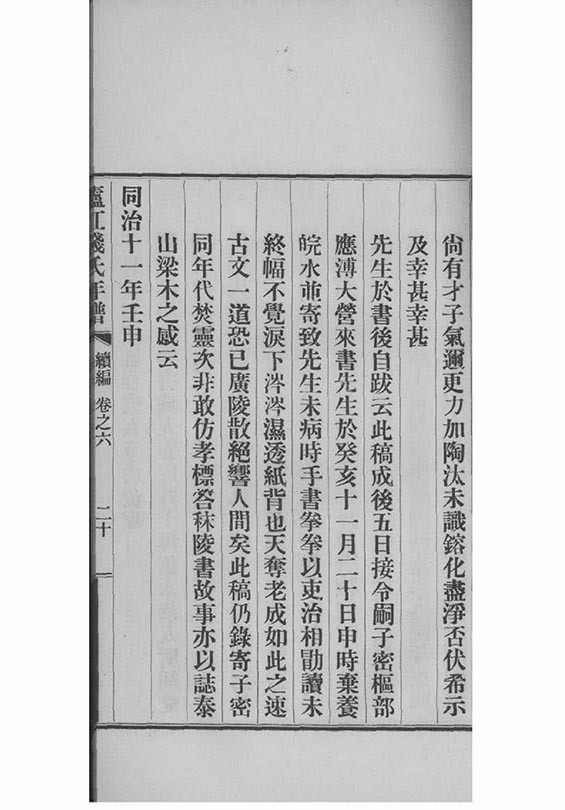 尙有才子氣邇更力加陶汰未識鎔化盡淨否伏希示
及幸甚幸甚
先生於書後自跋云此稿成後五日接令嗣子密樞部
應溥大營來書先生於癸亥十一月二十日申時棄養
皖水並寄致先生未病時手書拳拳以吏治相勖讀未
終幅不覺淚下涔涔濕透紙背也天奪老成如此之速
古文一道恐已廣陵散絕響人間矣此稿仍錄寄子密
同年代焚靈次非敢仿孝標答秣陵書故事亦以誌泰
山梁木之感云
同治十一年壬申
廬江錢氏年譜 續編 卷之六 二十